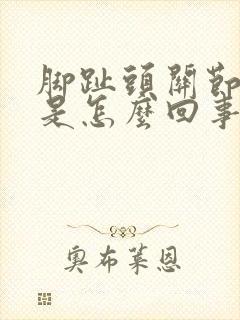 脚趾頭關節
是怎麼回事
奧布萊恩